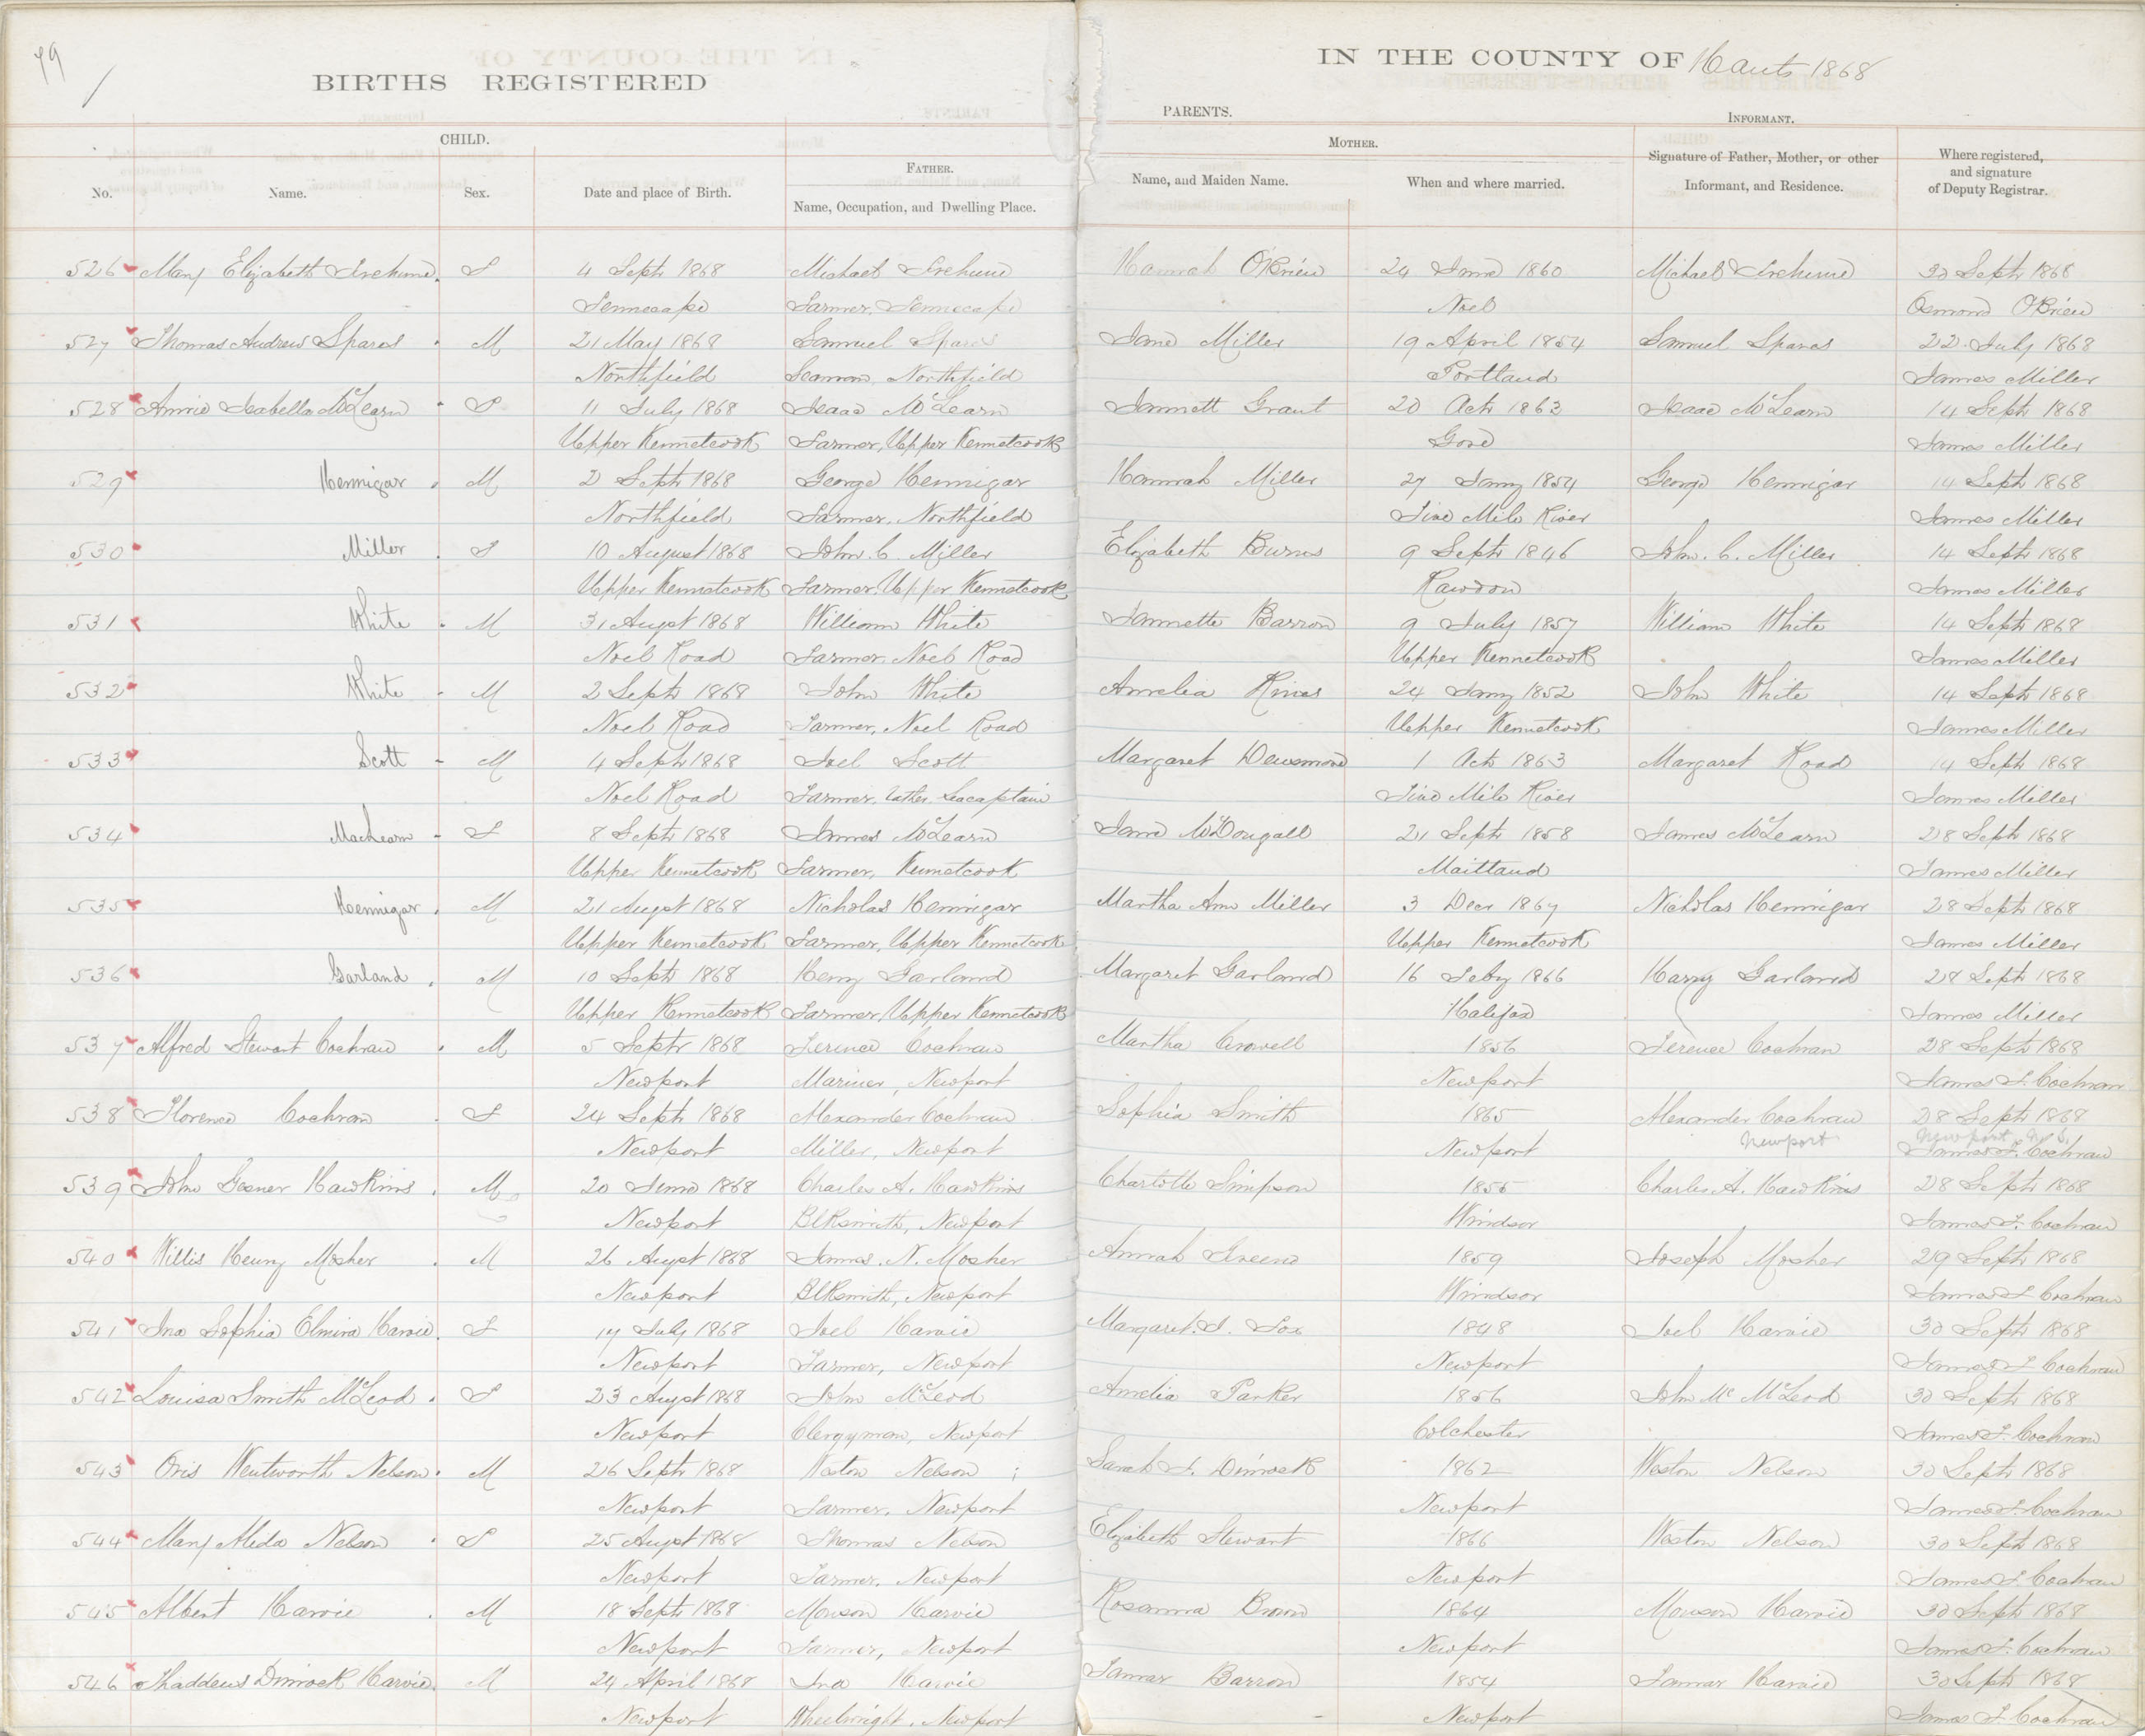 79
BIRTHS REGISTERED
IN THE COUNTY OF Hants 1868
CHILD.
PARENTS.
INFORMANT.
FATHER.
MOTHER.
No. Name. Sex. Date and place of Birth. Name, Occupation, and Dwelling Place. Name, and Maiden Name. When and where married. Signature of Father, Mother, or other Informant, and Residence. Where registered, and signature of Deputy Registrar.
526 Mary Elizabeth F 4 Sept 1868 Michael Hannah O'Brien 24 June 1860 Michael 30 Sept 1868
Tennecape Farmer, Tennecape Noel Osmond O'Brien
527 Thomas Andrew Spares M 21 May 1868 Samuel Spares Jane Miller 19 April 1854 Samuel Spares 22 July 1868
Northfield Seaman, Northfield Portland James Miller
528 Annie Isabella McLearn F 11 July 1868 Isaac McLearn Jannett Grant 20 Oct 1863 Isaac McLearn 14 Sept 1868
Upper Kennetcook Farmer, Upper Kennetcook Gore James Miller
529 Hennigar M 2 Sept 1868 George Hennigar Hannah Miller 27 Jany 1854 George Hennigar 14 Sept 1868
Northfield Farmer, Northfield Five Mile River James Miller
530 Miller F 10 August 1868 John C. Miller Elizabeth Burns 9 Sept 1846 John C. Miller 14 Sept 1868
Upper Kennetcook Farmer, Upper Kennetcook Rawdon James Miller
531 White M 31 Augst 1868 William White Jannette Barron 9 July 1857 William White 14 Sept 1868
Noel Road Farmer, Noel Road Upper Kennetcook James Miller
532 White M 2 Sept 1868 John White Amelia Hines 24 Jany 1852 John White 14 Sept 1868
Noel Road Farmer, Noel Road Upper Kennetcook James Miller
533 Scott M 4 Sept 1868 Joel Scott Margaret 1 Oct 1863 Margaret Road 14 Sept 1868
Noel Road Farmer, father Seacaptain Five Mile River James Miller
534 MacLearn F 8 Sept 1868 James McLearn Jane McDougall 21 Sept 1858 James McLearn 28 Sept 1868
Upper Kennetcook Farmer, Kennetcook Maitland James Miller
535 Hennigar M 21 Augst 1868 Nicholas Hennigar Martha Ann Miller 3 Decr 1867 Nicholas Hennigar 28 Sept 1868
Upper Kennetcook Farmer, Upper Kennetcook Upper Kennetcook James Miller
536 Garland M 10 Sept 1868 Henry Garland Margaret Garland 16 Feby 1866 Harry Garland 28 Sept 1868
Upper Kennetcook Farmer, Upper Kennetcook Halifax James Miller
537 Alfred Stewart Cochran M 5 Septr 1868 Terence Cochran Martha Crowell 1856 Terence Cochran 28 Sept 1868
Newport Mariner, Newport Newport James F. Cochran
538 Florence Cochran F 24 Sept 1868 Alexander Cochran Sophia Smith 1865 Alexander Cochran 28 Sept 1868
Newport Newport, N.S.
Newport Miller, Newport Newport James F. Cochran
539 John Gesner Hawkins M 20 June 1868 Charles A. Hawkins Charlotte Simpson 1855 Charles A. Hawkins 28 Sept 1868
Newport Blksmith, Newport Windsor James F. Cochran
540 Willis Henry Mosher M 26 Augst 1868 James N. Mosher Annah Greeno 1859 Joseph Mosher 29 Sept 1868
Newport Blksmith, Newport Windsor James F Cochran
541 Ina Sophia Elmira Harvie F 17 July 1868 Joel Harvie Margaret Fox 1848 Joel Harvie 30 Sept 1868
Newport Farmer, Newport Newport James F Cochran
542 Louisa Smith McLeod F 23 Augst 1868 John McLeod Amelia Parker 1856 John Mc McLeod 30 Sept 1868
Newport Clergyman, Newport Colchester James F. Cochran
543 Oris Wentworth Nelson M 26 Sept 1868 Weston Nelson Sarah F. Dimock 1862 Weston Nelson 30 Sept 1868
Newport Farmer, Newport Newport James F. Cochran
544 Mary Alida Nelson F 25 Augst 1868 Thomas Nelson Elizabeth Stewart 1866 Weston Nelson 30 Sept 1868
Newport Farmer, Newport Newport James F. Cochran
545 Albert Harvie M 18 Sept 1868 Monson Harvie Rosanna Brown 1864 Monson Harvie 30 Sept 1868
Newport Farmer, Newport Newport James F. Cochran
546 Thaddeus Dimock Harvie M 24 April 1868 Ina Harvie Tamar Barron 1854 Tamar Harvie 30 Sept 1868
Newport Wheelwright, Newport Newport James F Cochran